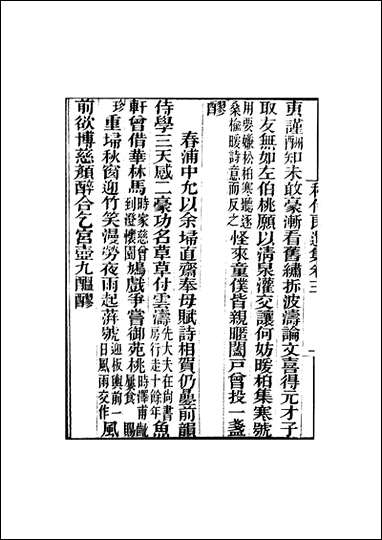 程侍郎遺集卷三
夷謹酬知未敢豪漸看舊繡拆波濤論文喜得元才子
取友無如左伯桃願以清泉灌交讓何妨暖柏集寒號
用要嫌松柏寒聽逐桑榆暖詩意而反之怪來童僕皆親暱闔戶曾投一盞
醪
春浦中允以余埽直齋奉母賦詩相質仍疊前韻
侍學三天感二豪功名草草付雲濤先大夫在尚書房行走十餘年魚
軒曾借華林馬時家慈曾到澄懷園鳩戲爭嘗御苑桃時澤甫齔屢食賜
珍重埽秋窗迎竹笑漫勞夜雨起蓱號迎板輿前一日風雨交作風
前欲博慈顏醉合乞宮壺九醞醪